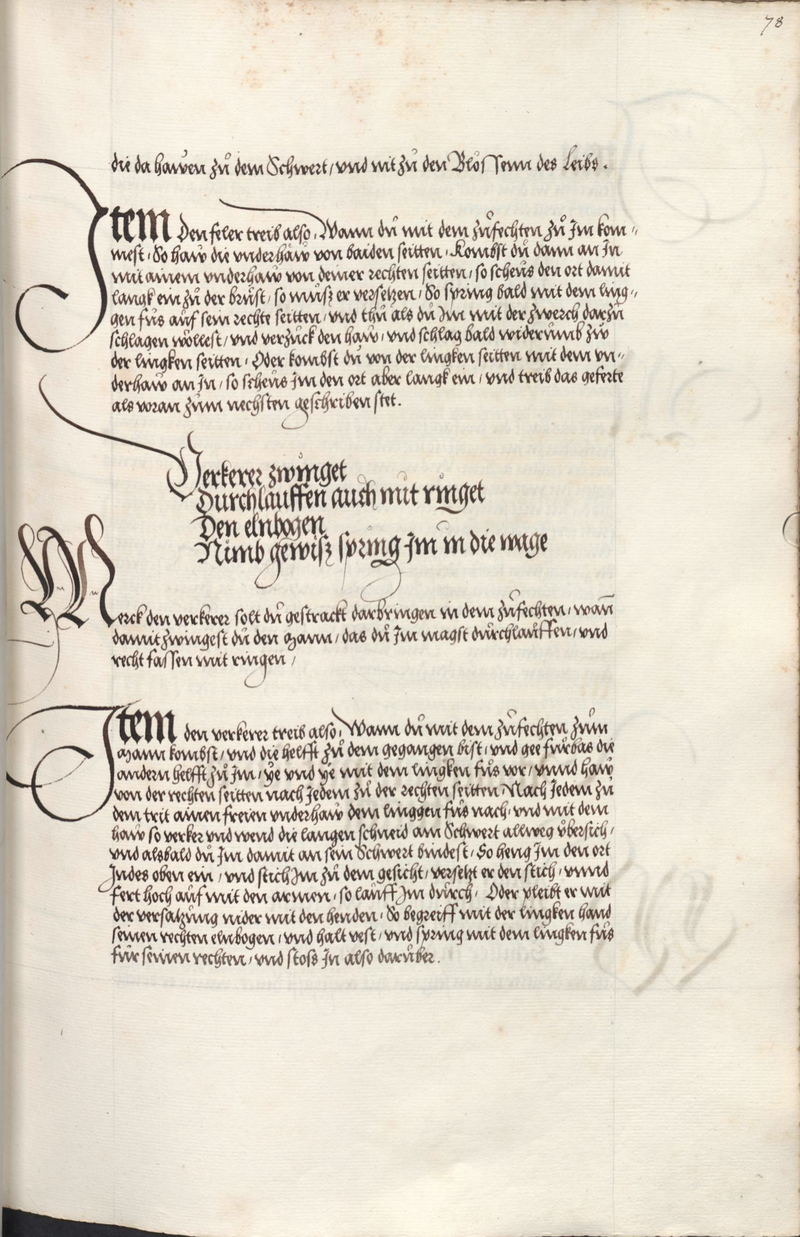 78
die da hawen zů dem Schwert / vnd nit zů den Blössenn des Leibs.
Item Den feler treib also, Wann dů mit dem zůfechten zů Im kom=
mest, So haw die vnderhaw von baiden seitten, Kombst dů dann an In
mit ainem vnderhaw von deiner rechten seitten, so scheüs den ort damit
langk ein zů der brůst, so můsz er versetzen, So spring bald mit dem ling=
gen fůs auf sein rechte seitten, vnd thů als dů Im mit der zwerch darzů
schlagen wöllest, vnd verzůck den haw, vnd schlag bald widerůmb zů
der lingken seitten, Oder kombst dů von der lingken seitten mit dem vn=
derhaw an In, so scheüs Im den ort aber langk ein, vnd treib das geferte
als voran zům nechsten geschriben stet.
Verkerer zwinget
Durchlauffen auch mit ringet
Den elnbogen
Nimb gewisz spring Im in die wage
Merck den verkerer solt dů gestrackt darbringen in dem zůfechten, wan̄
damit zwingest dů den Mann, das dů Im magst důrchlauffen, vnd
recht fassen mit ringen,
Item den verkerer treib also, Wann dů mit dem zůfechten zům
Mann kombst, vnd die helfft zů dem gegangen bist, vnd gee fůrbas die
andern helfft zů Im, ye vnd ye mit dem lingken fůs vor, vnnd haw
von der rechten seitten nach Jedem zů der rechten seitten Nach Jedem zů
dem trit ainen freien vnderhaw dem linggen fůs nach, vnd mit dem
haw so verker vnd wend die langen schneid am Schwert allweg vbersich,
vnd alsbald dů Im damit an sein Schwert bindest, So heng Im den ort
Indes oben ein, vnd stich Im zů dem gesicht, versetzt er den stich, vnnd
fert hoch auf mit den armen, so lauff Im důrch, Oder pleibt er mit
der versatzůng nider mit den henden, So begreiff mit der lingken hand
seinen rechten elnbogen, vnd halt vest, vnd spring mit dem lingken fůs
fůr seinen rechten, vnd stoss In also darůber.